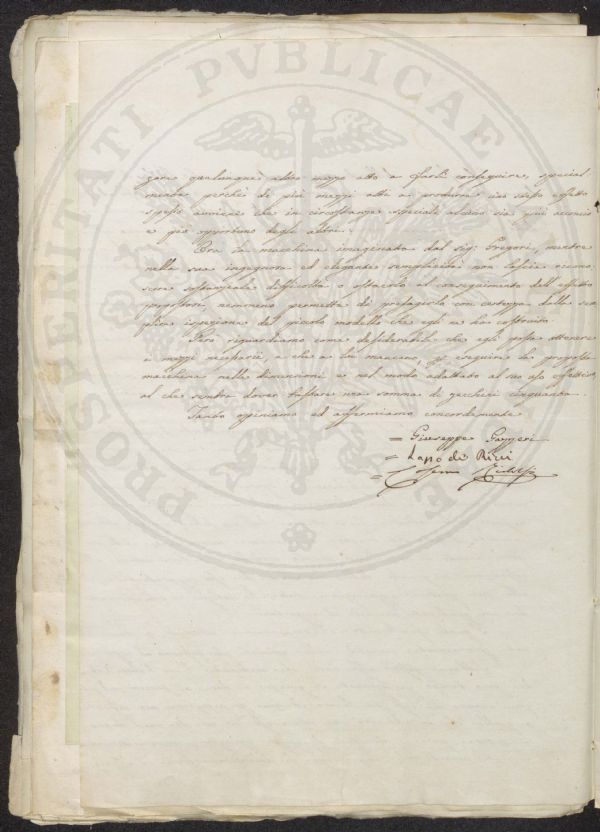 PROSPERITATI PVBLICAE
zare qualunque altro mezzo atto a farli conseguire, special
mente perchè di più mezzi atti a produrre uno stesso effetto
spesso avviene che in circostanze speciali alcuno sia più acconcio
e più opportuno degli altri.
Ora la macchina immaginata dal Sig. Gregori, mentre
nella sua ingegnosa ed elegante semplicità non lascia ricono
scere sostanziali difficoltà o ostacoli al conseguimento dell'effetto
propostosi, nemmeno permette di presagirlo con certezza dalla sem
plice ispezione del piccolo modello che egli ne ha costruito.
Però riguardiamo come desiderabile che egli possa ottenere
i mezzi necessarii, e che a lui mancano, per eseguire la progettata
macchina nelle dimensioni e nel modo adattato al suo uso effettivo,
al che sembra dover bastare una somma di zecchini cinquanta.
Tanto opiniamo ed affermiamo concordemente
= Giuseppe Gazzeri
= Lapo de Ricci
= Cosimo Ridolfi